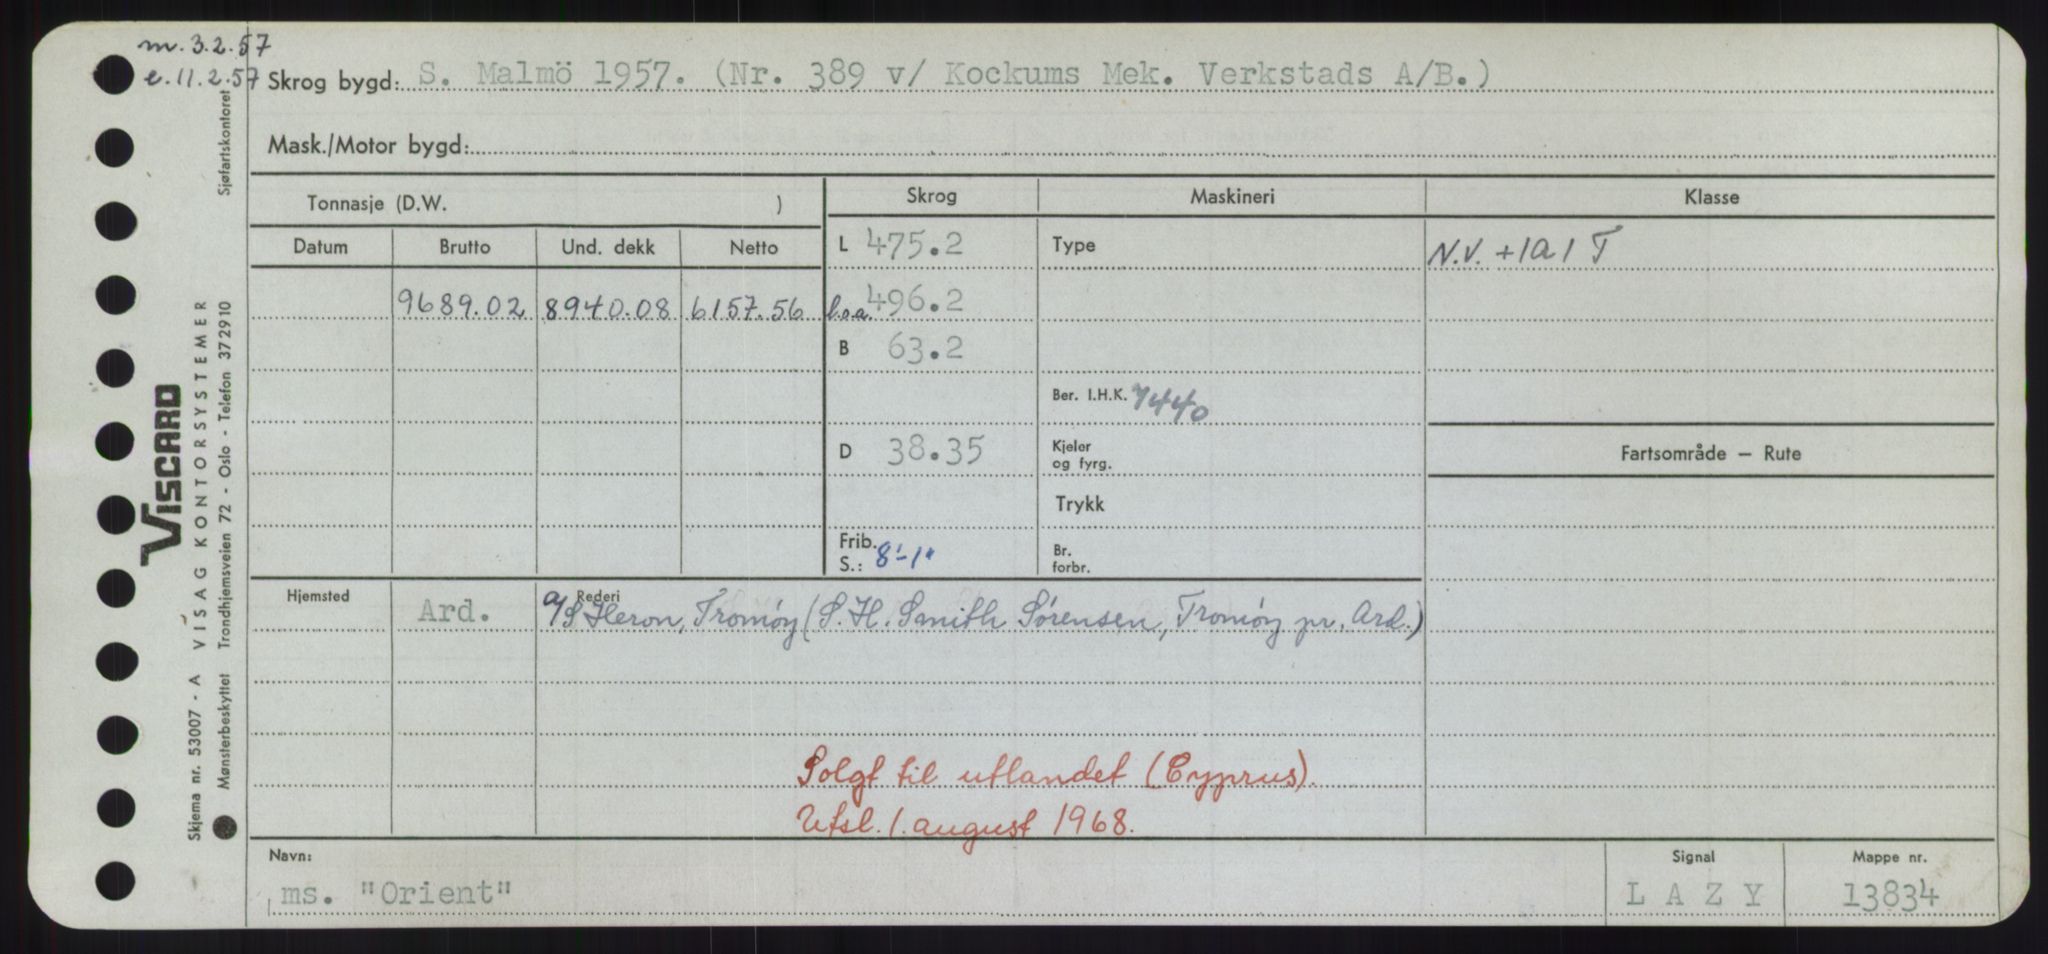 m. 3.2.57
e. 11.2.57
Skrog bygd: S. Malmö 1957. (Nr. 389 v/ Kockums Mek. Verkstads A/B.)
Mask./Motor bygd:
Tonnasje (D.W. )
Skrog Maskineri Klasse
Datum Brutto Und. dekk Netto
L 475.2 Type N.V. +1A1 T
9689.02 8940.08 6157.56 l.o.a. 496.2
B 63.2
Ber. I.H.K. 7440
D 38.35 Kjeler
og fyrg.
Fartsområde – Rute
Trykk
Frib.
S.: 8'-1"
Br.
forbr.
Hjemsted Rederi
Ard. A/S Heron, Tromøy (S. H. Smith Sørensen, Tromøy pr. Ard.)
Solgt til utlandet (Cyprus).
Utsl. 1. august 1968.
Navn: Signal Mappe nr.
ms. "Orient" L A Z Y 13834
VISCARD
VISAG KONTORSYSTEMER
Skjema nr. 53007 - A
Mønsterbeskyttet Trondhjemsveien 72 - Oslo - Telefon 37 29 10
Sjøfartskontoret